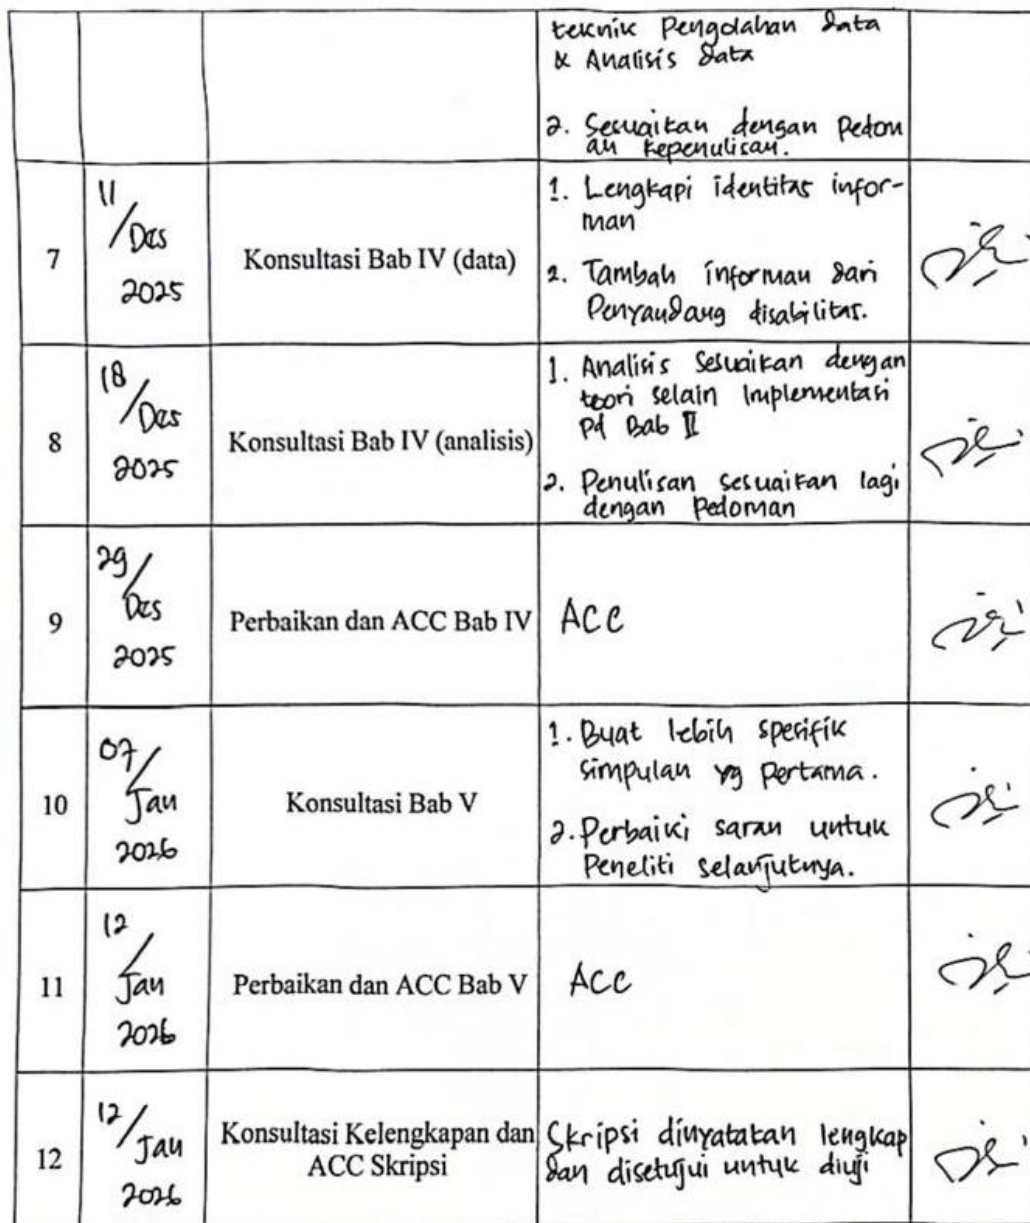 teknik Pengolahan data
& Analisis data
2. Sesuaikan dengan Pedom
an kepenulisan.
7
11/Des
2025
Konsultasi Bab IV (data)
1. Lengkapi identitas infor-
man
2. Tambah informan dari
Penyandang disabilitas.
8
18/Des
2025
Konsultasi Bab IV (analisis)
1. Analisis Sesuaikan dengan
teori selain Implementasi
Pd Bab II
2. Penulisan sesuaikan lagi
dengan Pedoman
9
29/
Des
2025
Perbaikan dan ACC Bab IV
ACC
10
07/
Jan
2026
Konsultasi Bab V
1. Buat lebih spesifik
simpulan yg pertama.
2. Perbaiki saran untuk
Peneliti selanjutnya.
11
12/
Jan
2026
Perbaikan dan ACC Bab V
ACC
12
12/Jan
2026
Konsultasi Kelengkapan dan
ACC Skripsi
Skripsi dinyatakan lengkap
dan disetujui untuk diuji